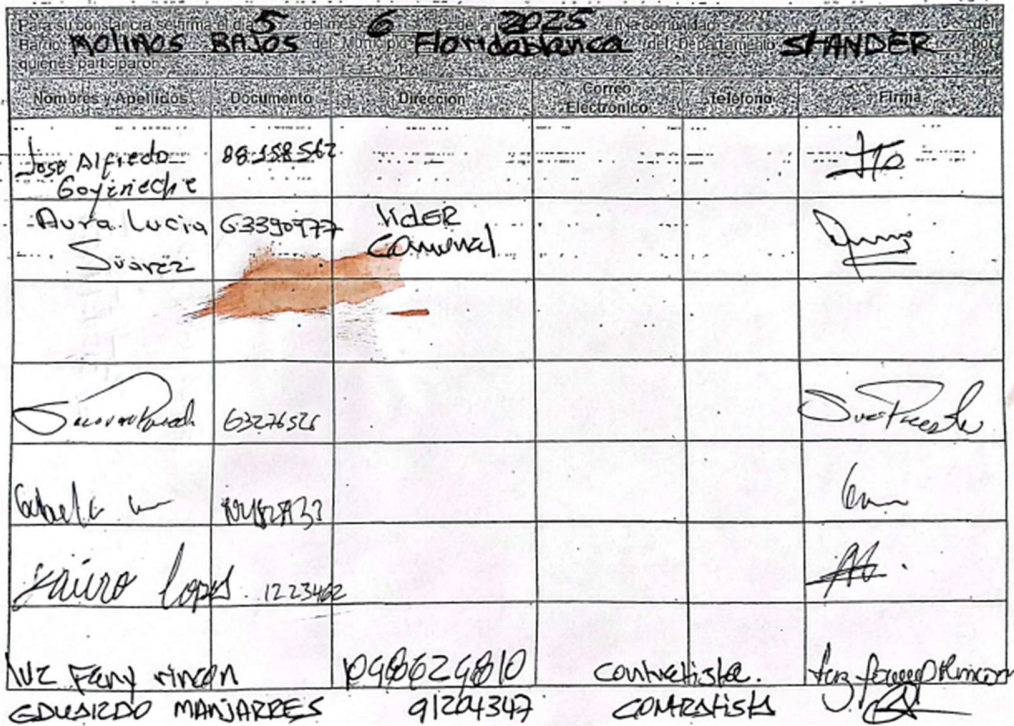 Para su constancia se firma el día 5 del mes 6 de 2025 en la comunidad del
Barrio: MOLINOS BAJOS del Municipio Floridablanca del Departamento STANDER por
quienes participaron
Nombres y Apellidos Documento Dirección Correo Electrónico Teléfono Firma
Jose Alfredo 88.158.562
Goyeneche
Aura Lucia 63390977 LIDER
Suarez Comunal
63276526
lopes 1223462
luz Fany rincon 1098624810 contratista. luz fanny Rincon
EDUARDO MANJARRES 91204347 CONTRATISTA